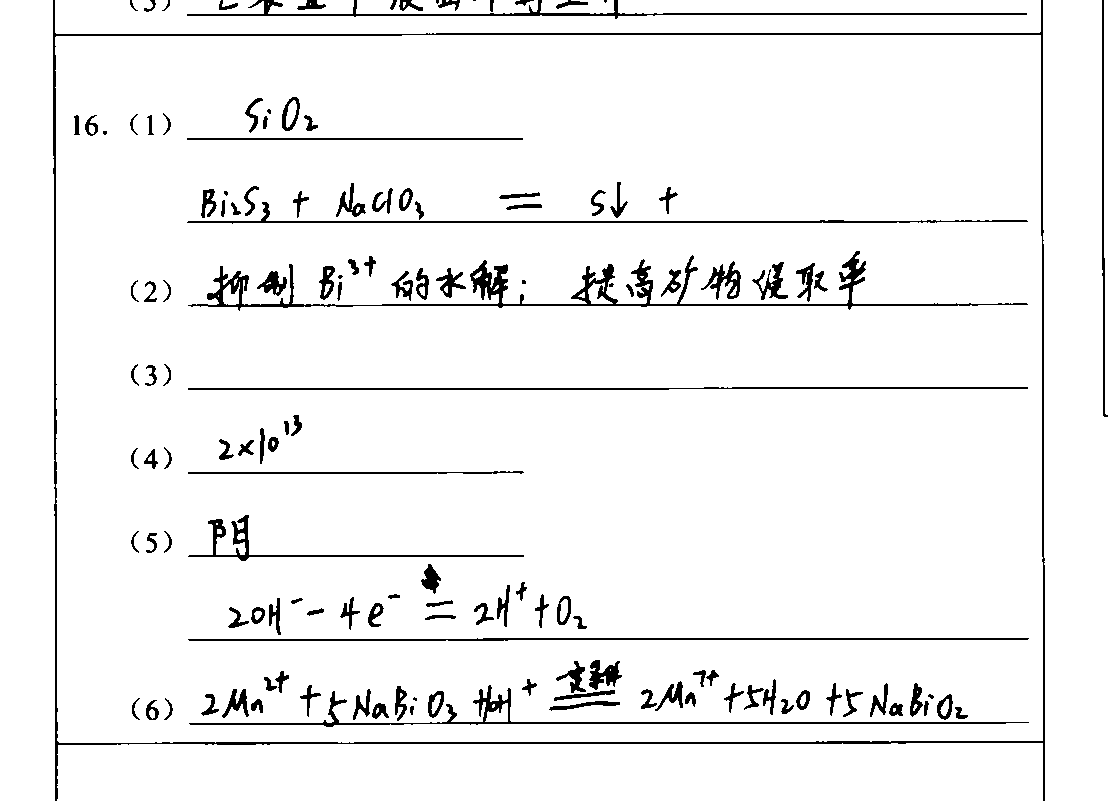 (3)
16. (1) SiO₂
Bi₂S₃ + NaClO₃ = S↓ +
(2) 抑制 Bi³⁺ 的水解; 提高矿物提取率
(3)
(4) 2×10¹³
(5) 阴
2OH⁻ - 4e⁻ = 2H⁺ + O₂
(6) 2Mn²⁺ + 5NaBiO₃ + 10H⁺ = 2Mn⁷⁺ + 5H₂O + 5NaBiO₂